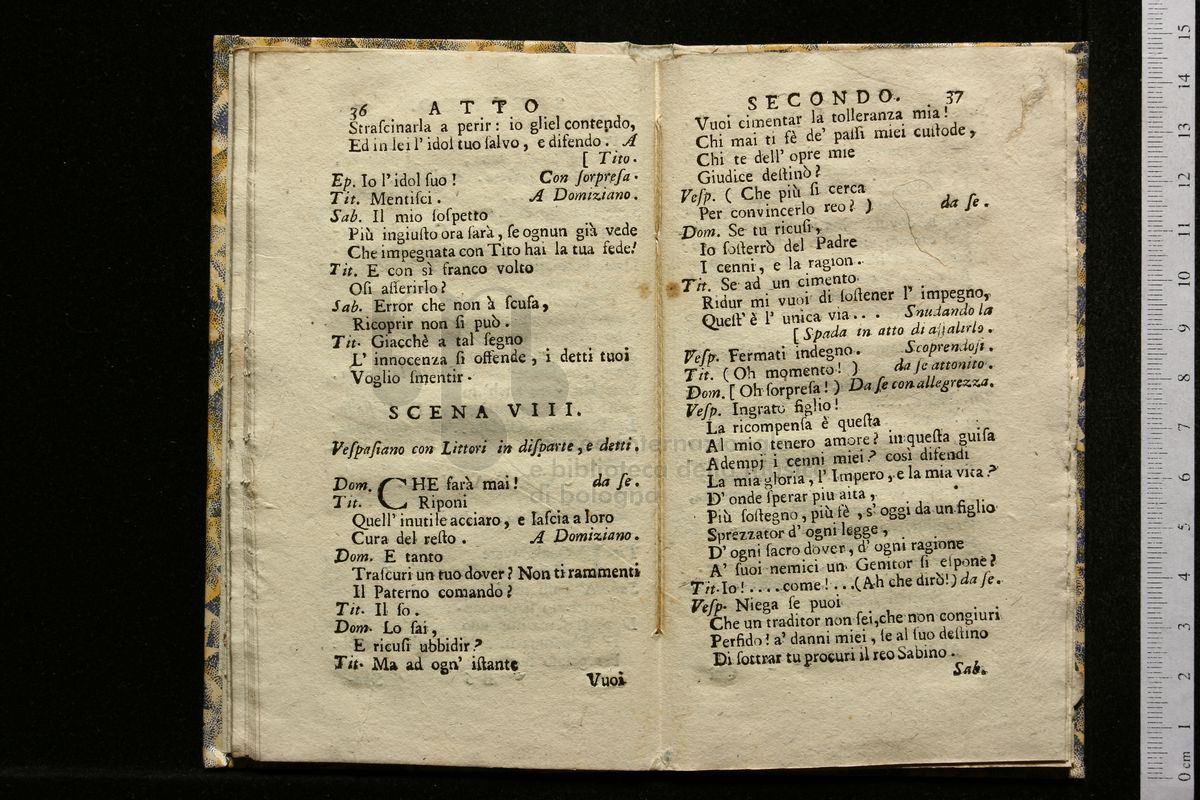 36 ATTO
Straſcinarla a perir: io gliel contendo,
Ed in lei l' idol tuo ſalvo, e difendo. A
[ Tito.
Ep. Io l' idol ſuo! Con ſorpreſa.
Tit. Mentiſci. A Domiziano.
Sab. Il mio ſoſpetto
Più ingiuſto ora ſarà, ſe ognun già vede
Che impegnata con Tito hai la tua fede!
Tit. E con sì franco volto
Oſi aſſerirlo?
Sab. Error che non à ſcuſa,
Ricoprir non ſi può.
Tit. Giacchè a tal ſegno
L' innocenza ſi offende, i detti tuoi
Voglio ſmentir.
SCENA VIII.
Veſpaſiano con Littori in diſparte, e detti.
Dom. CHE ſarà mai! da ſe.
Tit. Riponi
Quell' inutile acciaro, e laſcia a loro
Cura del reſto. A Domiziano.
Dom. E tanto
Traſcuri un tuo dover? Non ti rammenti
Il Paterno comando?
Tit. Il ſo.
Dom. Lo ſai,
E ricuſi ubbidir?
Tit. Ma ad ogn' iſtante
Vuoi
SECONDO. 37
Vuoi cimentar la tolleranza mia!
Chi mai ti fè de' paſſi miei cuſtode,
Chi te dell' opre mie
Giudice deſtinò?
Veſp. ( Che più ſi cerca
Per convincerlo reo? ) da ſe.
Dom. Se tu ricuſi,
Io ſoſterrò del Padre
I cenni, e la ragion.
Tit. Se ad un cimento
Ridur mi vuoi di ſoſtener l' impegno,
Queſt' è l' unica via... Snudando la
[ Spada in atto di aſſalirlo.
Veſp. Fermati indegno. Scoprendoſi.
Tit. ( Oh momento! ) da ſe attonito.
Dom. [ Oh ſorpreſa! ) Da ſe con allegrezza.
Veſp. Ingrato figlio!
La ricompenſa è queſta
Al mio tenero amore? in queſta guiſa
Adempi i cenni miei? così difendi
La mia gloria, l' Impero, e la mia vita?
D' onde ſperar più aita,
Più ſoſtegno, più fè, s' oggi da un figlio
Sprezzator d' ogni legge,
D' ogni ſacro dover, d' ogni ragione
A' ſuoi nemici un Genitor ſi eſpone?
Tit. Io!....come!...(Ah che dirò!) da ſe.
Veſp. Niega ſe puoi
Che un traditor non ſei, che non congiuri
Perfido! a' danni miei, ſe al ſuo deſtino
Di ſottrar tu procuri il reo Sabino.
Sab.
e biblioteca della
di bologna
0 cm 1 2 3 4 5 6 7 8 9 10 11 12 13 14 15